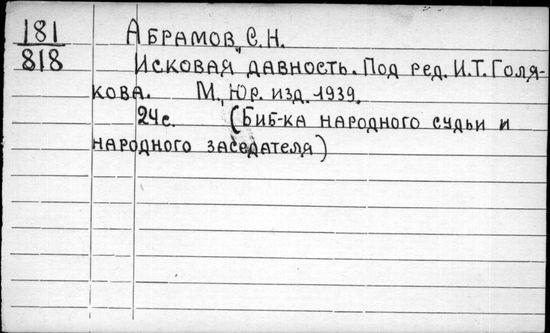 181 Абрамов, С.Н.
818 Исковая давность. Под ред. И.Т. Голя-
кова. М., Юр. изд. 1939.
24 с. (Биб-ка народного судьи и
народного заседателя)